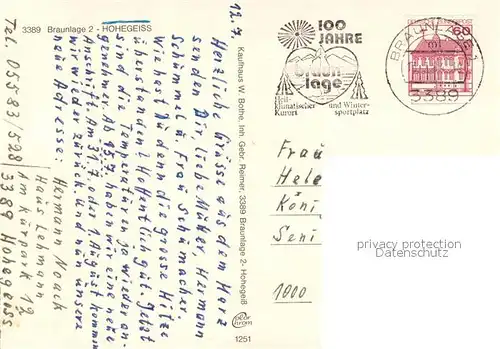 3389 Braunlage 2 - HOHEGEISS
12.7.
Herzliche Grüße aus dem Harz
senden Dir, liebe Mutter, Hermann
Schümmel u. Frau Schumacher.
Wie hast Du denn die große Hitze
überstanden? Hoffentlich gut. Jetzt
sind die Temperaturen ja wieder an-
genehmer. Ab 15.7. haben wir eine neue
Anschrift. Am 31.7. oder 1. August kommen
wir wieder zurück und nun unsere
neue Adresse:
Hermann Noack
Haus Lehmann
Am Kurpark 12
3389 Hohegeiss
Tel. 05583/528
Kaufhaus W. Bothe, Inh. Gebr. Reimer, 3389 Braunlage 2 - Hohegeiß
1251
100
JAHRE
Braun
lage
Heil-
klimatischer
Kurort
und Winter-
sportplatz
BRAUNLAGE 1
ml
3389
60
Frau
Hele
Köni
Seni
1000
privacy protection
watermark